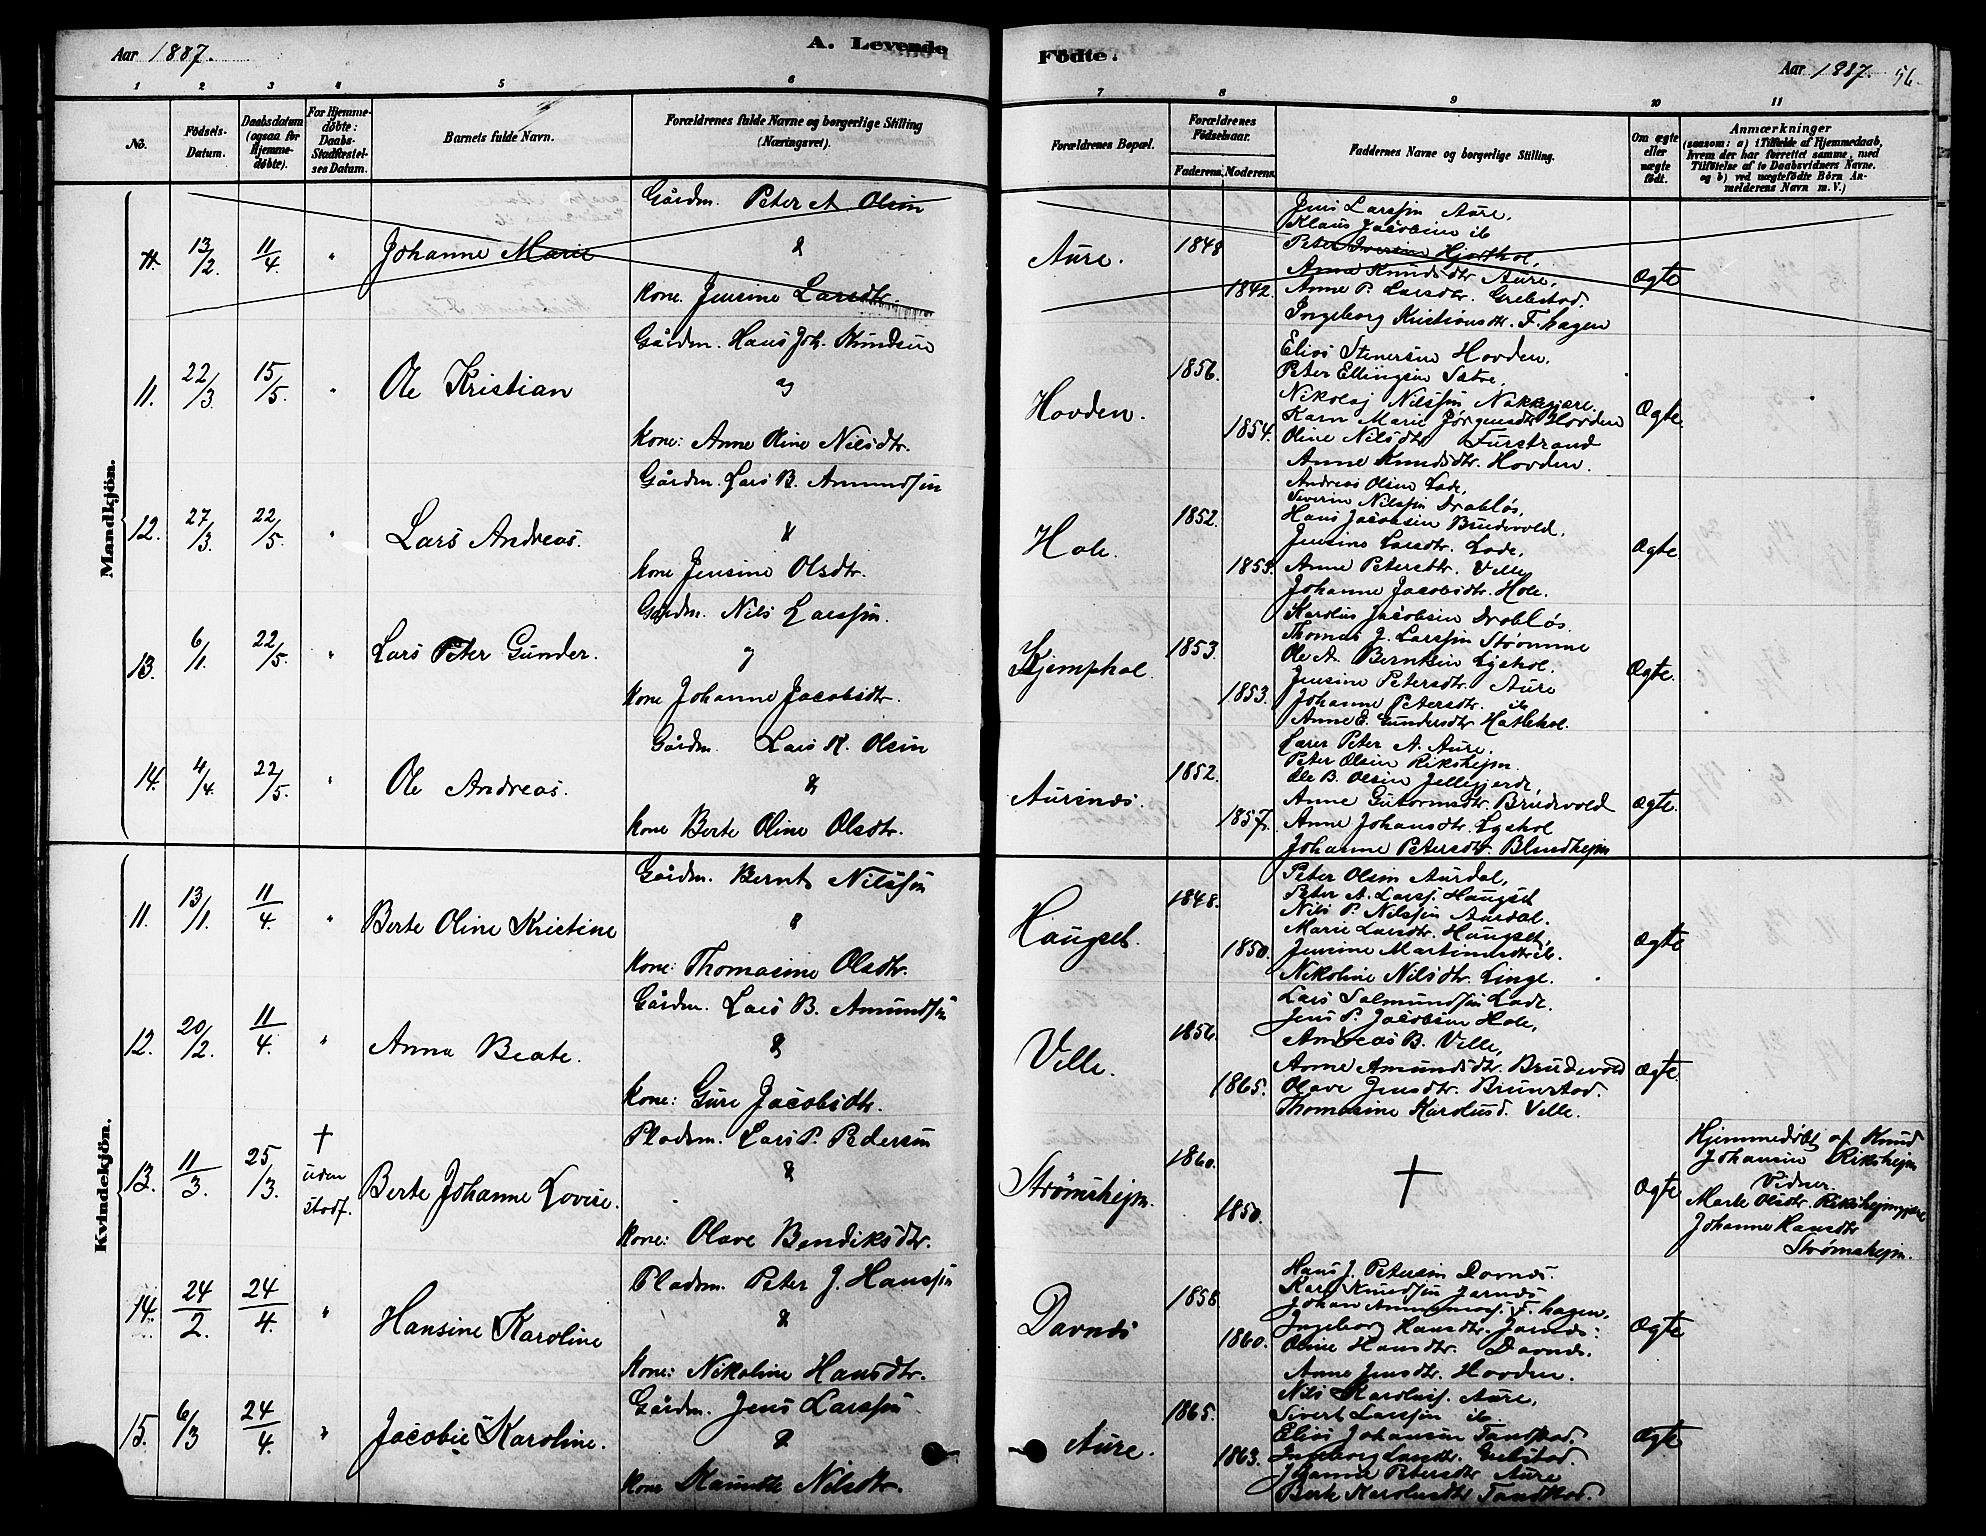 Aar 1887.
A. Levende
Födte.
Aar 1887. 56.
1 2 3 4 5 6 7 8 9 10 11
No.
Födsels-Datum.
Daabsdatum (ogsaa for Hjemme-døbte).
For Hjemme-døbte: Daabs-Stadfæstel-ses Datum.
Barnets fulde Navn.
Forældrenes fulde Navne og borgerlige Stilling (Næringsvei).
Forældrenes Bopæl.
Forældrenes Födselsaar.
Faderens. Moderens.
Faddernes Navne og borgerlige Stilling.
Om ægte eller uægte født.
Anmærkninger
(saasom: a) i Tilfælde af Hjemmedaab, hvem der har forrettet samme, med Tilföielse af to Daabsvidners Navne, og b) ved uægtefödte Börn Anmelderens Navn m. V.)
Mandkjön.
13/2 11/4 " Johanne Marie
Gårdm. Peter A Olsen
&
kone. Jensine Larsdtr.
Aure. 1848 1842.
Jens Larssen Aure,
Klaus Jacobsen ib
Peter Iversen Hjorthol,
Anne Knudsdtr Aure,
Anne P. Larsdtr. Grebstad.
Ingeborg Kristiansdtr. F.hagen
Ægte
11. 22/3 15/5. " Ole Kristian
Gårdm. Hans Joh. Knudsen
og
kone: Anne Oline Nilsdtr.
Hovden. 1856. 1854.
Elias Stenersen Hovden.
Peter Ellingsen Sætre,
Nikolaj Nilssen Nakkegjære.
Karn Marie Jørgensdtr Hovden
Oline Nilsdtr Furstrand
Anne Knudsdtr. Hovden.
Ægte.
12. 27/3 22/5. " Lars Andreas.
Gårdm. Lars B. Amundsen
&
kone Jensine Olsdtr.
Hole. 1852. 1853.
Andreas Olsen Lade,
Severin Nilssen Drabløs,
Hans Jacobsen Brudevold.
Jensine Larsdtr. Lade,
Anne Petersdtr. Velle
Johanne Jacobsdtr. Hole.
Ægte
13. 6/1. 22/5. " Lars Peter Gunder.
Gårdm. Nils Larssen.
og
kone Johanne Jacobsdtr.
Kjemphol. 1853. 1853.
Karolus Jacobsen Drabløs
Thomas J. Larssen Strømme
Ole A. Berntsen Lyshol.
Jensine Petersdtr. Aure
Johanne Petersdtr. ib
Anne E. Gundersdtr Hatlehol.
Ægte.
14. 4/4. 22/5. " Ole Andreas.
Gårdm. Lars K. Olsen
&
kone Berte Oline Olsdtr.
Aursnes. 1852. 1857.
Lærer Peter A. Aure.
Peter Olsen Rikshejm.
Ole B. Olsen Jellegjerde,
Anne Gutormsdtr. Brudevold
Anne Johansdtr. Lyshol
Johanne Petersdtr. Blindhejm
Ægte.
Kvindekjön.
11. 13/1. 11/4. " Berte Oline Kristine
Gårdm. Bernt Nilssen
&
kone: Thomasine Olsdtr.
Haugset. 1848. 1850.
Peter Olsen Aurdal,
Peter A. Larss. Haugset
Nils P. Nilssen Aurdal.
Marie Larsdtr. Haugset,
Jensine Martinusdtr ib.
Nikoline Nilsdtr. Linge.
Ægte
12. 20/2. 11/4. " Anna Beate.
Gårdm. Lars B. Amundsen
&
kone: Gure Jacobsdtr.
Velle. 1856. 1865.
Lars Salmundsen Lade.
Jens P. Jacobsen Hole,
Andreas B. Velle,
Anne Amundsdtr. Brudevold
Olave Jensdtr. Brunstad.
Thomasine Karolusd. Velle.
Ægte.
13. 11/3. 25/3. † uden stadf. Berte Johanne Lovise.
Pladsm. Lars P. Pedersen
&
kone: Olave Bendiksdtr.
Strømshejm. 1860. 1850.
†
Ægte
Hjemmedøbt af Knud
Johansen Rikshejm
Vidner.
Marte Olsdtr. Rikshejmgjære
Johanne Hansdtr
Strømshejm.
14. 24/2. 24/4. " Hansine Karoline
Pladsm. Peter J. Hanssen
&
kone: Nikoline Hansdtr.
Davnes 1858 1860.
Hans J. Petersen Davnes.
Karl Knudssen Jarnes
Ingeborg Hansdtr. Jarnes.
Oline Hansdtr. Davnes.
Anne Jensdtr. Hovden.
Ægte
15. 6/3 24/4. " Jacobie Karoline.
Gårdm. Jens Larssen
&
kone Nilsdtr.
Aure. 1865. 1863.
Nils Karolus. Aure,
Sivert Larssen ib
Elias Johansen Tandstad.
Ingeborg Larsdtr. Grebstad.
Johanne Petersdtr Aure
Berte Karolusdtr Tandstad.
Ægte